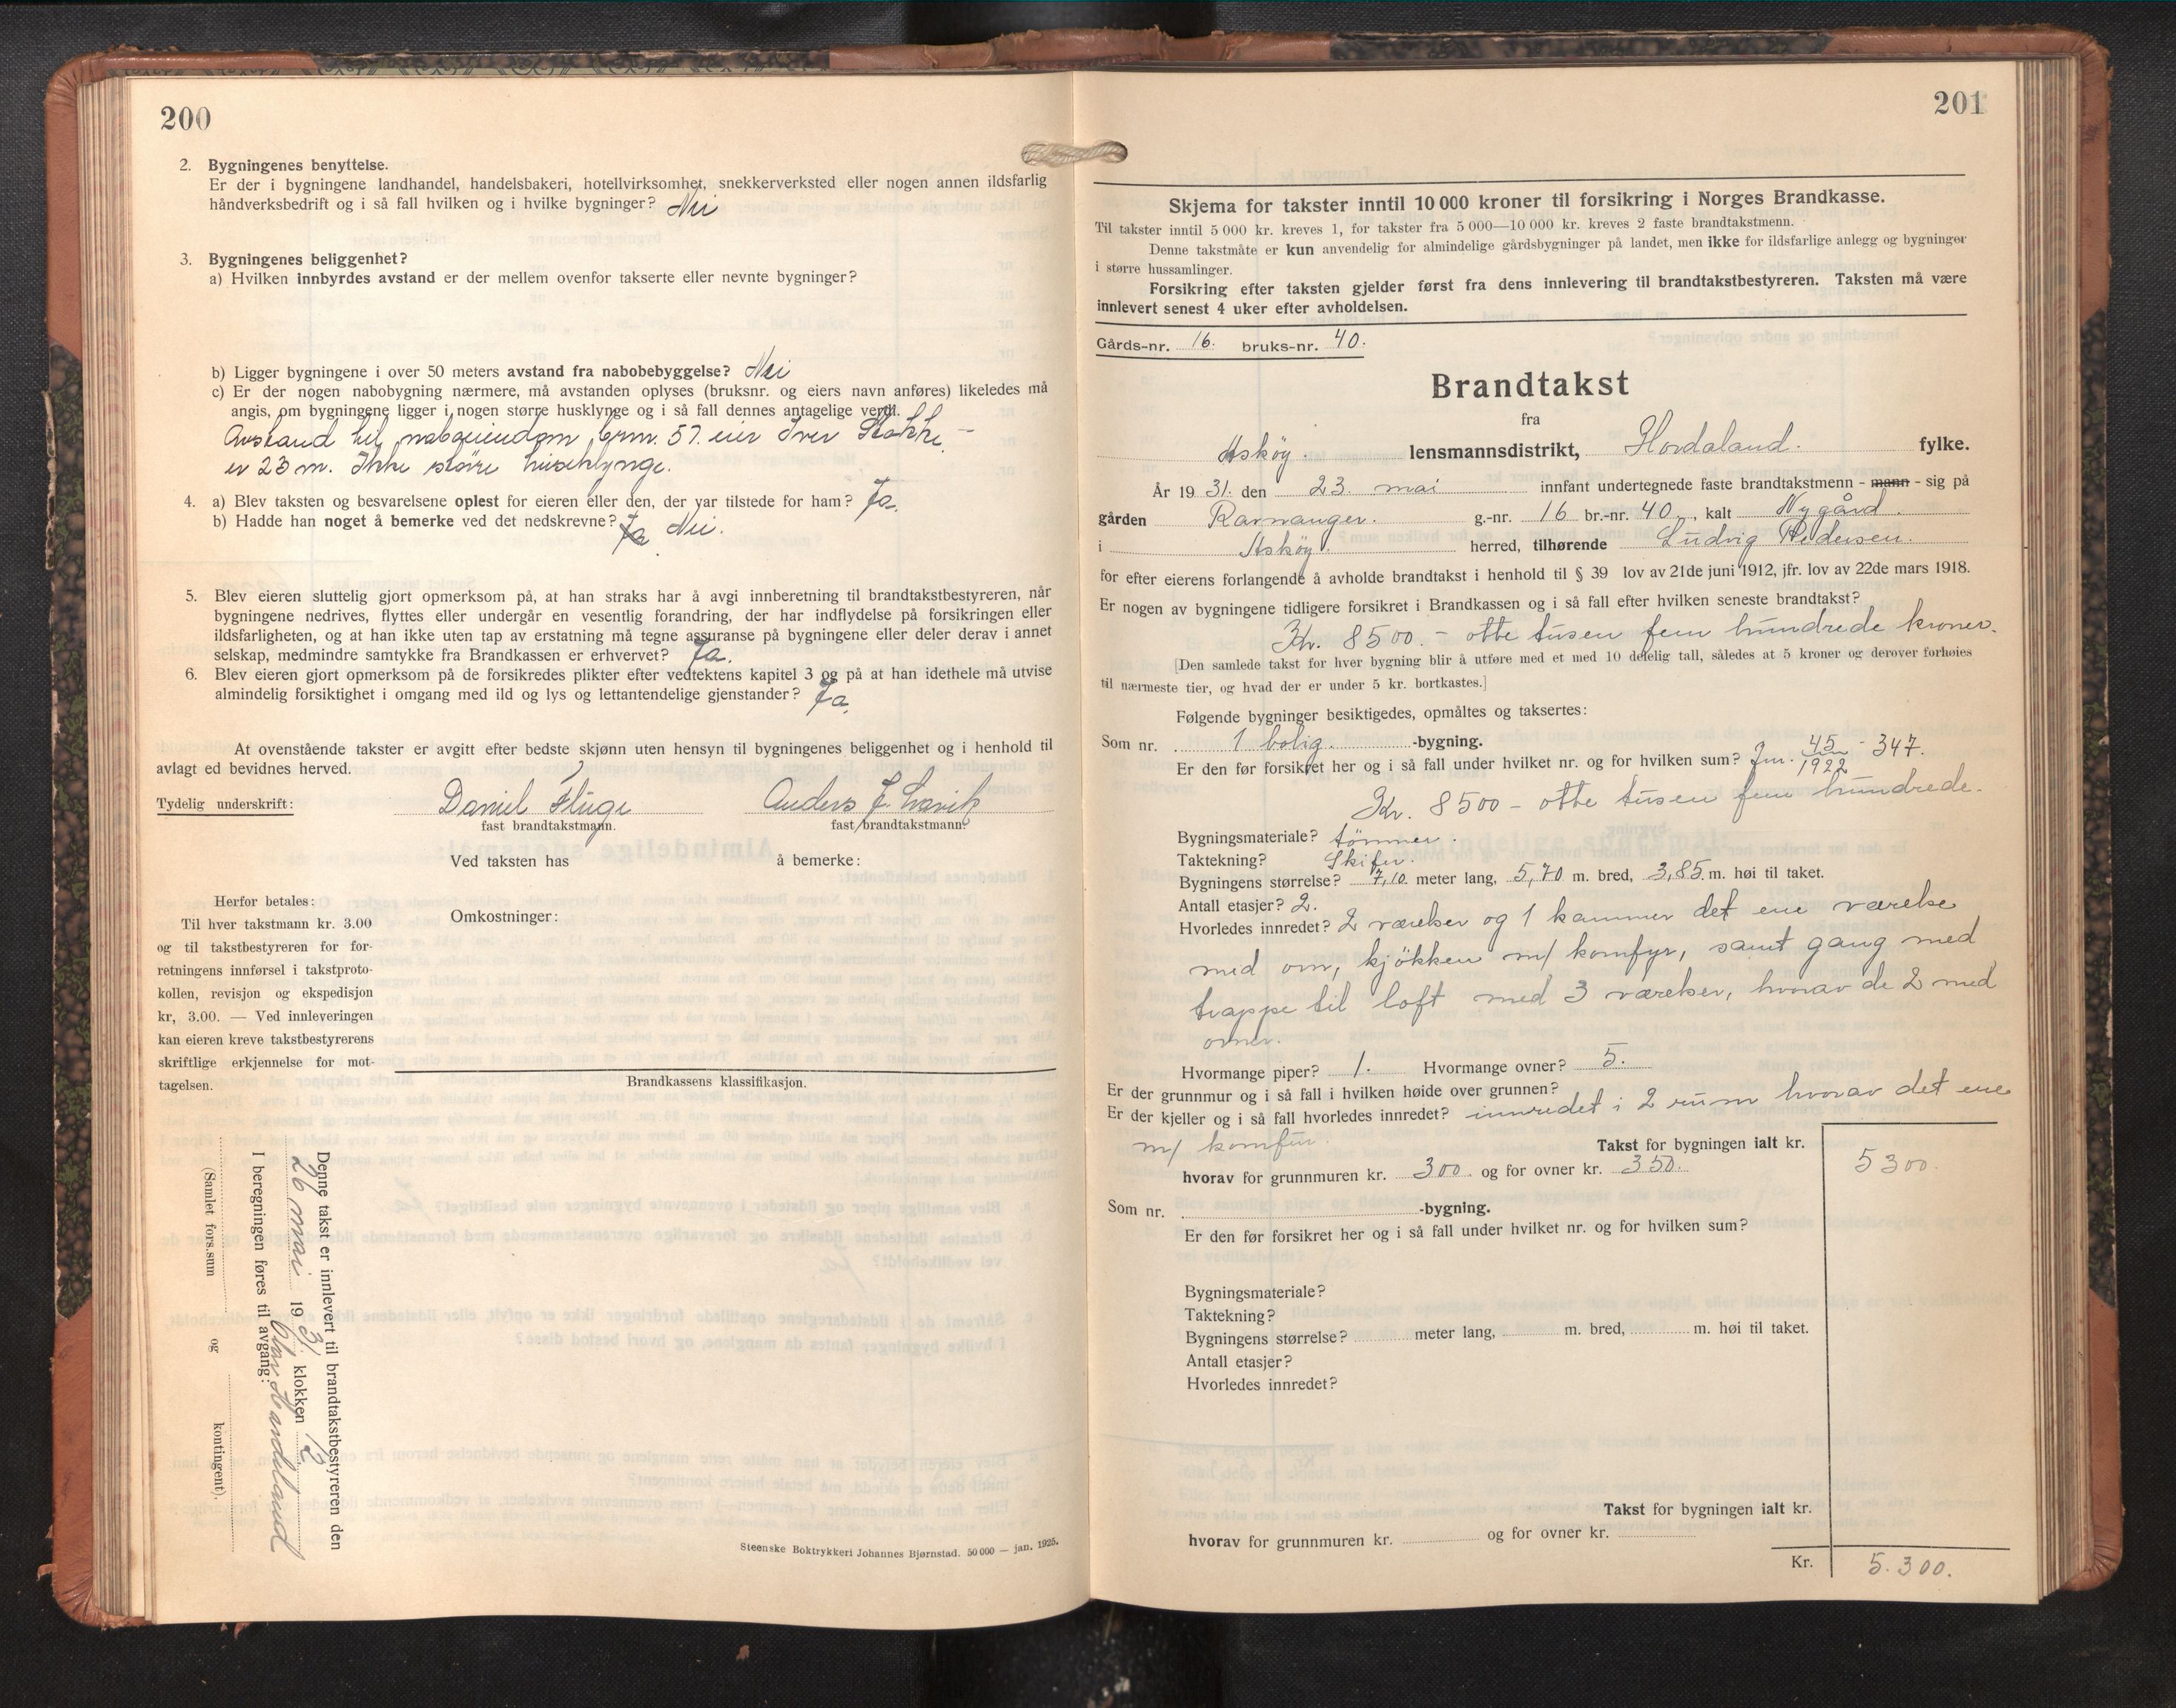 200
2. Bygningenes benyttelse.
Er der i bygningene landhandel, handelsbakeri, hotellvirksomhet, snekkerverksted eller nogen annen ildsfarlig
håndverksbedrift og i så fall hvilken og i hvilke bygninger? Nei
3. Bygningenes beliggenhet?
a) Hvilken innbyrdes avstand er der mellem ovenfor takserte eller nevnte bygninger?
b) Ligger bygningene i over 50 meters avstand fra nabobebyggelse? Nei
c) Er der nogen nabobygning nærmere, må avstanden oplyses (bruksnr. og eiers navn anføres) likeledes må
angis, om bygningene ligger i nogen større husklynge og i så fall dennes antagelige verdi.
Avstand til naboeiendom brnr. 57. eier Iver Stokke –
er 23 m. Ikke större huseklynge.
4. a) Blev taksten og besvarelsene oplest for eieren eller den, der var tilstede for ham? Ja.
b) Hadde han noget å bemerke ved det nedskrevne? Ja Nei.
5. Blev eieren sluttelig gjort opmerksom på, at han straks har å avgi innberetning til brandtakstbestyreren, når
bygningene nedrives, flyttes eller undergår en vesentlig forandring, der har indflydelse på forsikringen eller
ildsfarligheten, og at han ikke uten tap av erstatning må tegne assuranse på bygningene eller deler derav i annet
selskap, medmindre samtykke fra Brandkassen er erhvervet? Ja.
6. Blev eieren gjort opmerksom på de forsikredes plikter efter vedtektens kapitel 3 og på at han idethele må utvise
almindelig forsiktighet i omgang med ild og lys og lettantendelige gjenstander? Ja.
At ovenstående takster er avgitt efter bedste skjønn uten hensyn til bygningenes beliggenhet og i henhold til
avlagt ed bevidnes herved.
Tydelig underskrift: Daniel Fluge Anders J.
fast brandtakstmann. fast brandtakstmann.
Ved taksten has å bemerke:
Omkostninger:
Herfor betales:
Til hver takstmann kr. 3.00
og til takstbestyreren for for-
retningens innførsel i takstproto-
kollen, revisjon og ekspedisjon
kr, 3.00. — Ved innleveringen
kan eieren kreve takstbestyrerens
skriftlige erkjennelse for mot-
tagelsen.
Brandkassens klassifikasjon.
Denne takst er innlevert til brandtakstbestyreren den
26 mai 1931. klokken 12
Olav Handeland
I beregningen føres til avgang:
(Samlet fors.sum og kontingent).
Steenske Boktrykkeri Johannes Bjørnstad. 50 000 — jan. 1925.
201
Skjema for takster inntil 10 000 kroner til forsikring i Norges Brandkasse.
Til takster inntil 5 000 kr. kreves 1, for takster fra 5 000—10 000 kr. kreves 2 faste brandtakstmenn.
Denne takstmåte er kun anvendelig for almindelige gårdsbygninger på landet, men ikke for ildsfarlige anlegg og bygninger
i større hussamlinger.
Forsikring efter taksten gjelder først fra dens innlevering til brandtakstbestyreren. Taksten må være
innlevert senest 4 uker efter avholdelsen.
Gårds-nr. 16. bruks-nr. 40.
Brandtakst
fra
Asköy. lensmannsdistrikt, Hordaland. fylke.
År 1931. den 23. mai innfant undertegnede faste brandtakstmenn - mann - sig på
gården Ravnanger. g.-nr. 16 br.-nr. 40., kalt Nygård.
i Asköy. herred, tilhørende Ludvig Pedersen.
for efter eierens forlangende å avholde brandtakst i henhold til § 39 lov av 21de juni 1912, jfr. lov av 22de mars 1918.
Er nogen av bygningene tidligere forsikret i Brandkassen og i så fall efter hvilken seneste brandtakst?
Kr. 8500. – otte tusen fem hundrede kroner.
[Den samlede takst for hver bygning blir å utføre med et med 10 delelig tall, således at 5 kroner og derover forhøies
til nærmeste tier, og hvad der er under 5 kr. bortkastes.]
Følgende bygninger besiktigedes, opmåltes og taksertes:
Som nr. 1 bolig. -bygning.
Er den før forsikret her og i så fall under hvilket nr. og for hvilken sum? Jnr. 45/1922 - 347.
Kr. 8500 – otte tusen fem hundrede.
Bygningsmateriale? tömmer.
Taktekning? Skifer.
Bygningens størrelse? 7,10 meter lang, 5,70 m. bred, 3,85 m. høi til taket.
Antall etasjer? 2.
Hvorledes innredet? 2 værelser og 1 kammer det ene værelse
med ovn, kjökken m/ komfyr, samt gang med
trappe til loft med 3 værelser, hvorav de 2 med
ovner.
Hvormange piper? 1. Hvormange ovner? 5.
Er der grunnmur og i så fall i hvilken høide over grunnen?
Er der kjeller og i så fall hvorledes innredet? innredet i 2 rum hvorav det ene
m/ komfur. Takst for bygningen ialt kr. 5300.
hvorav for grunnmuren kr. 300. og for ovner kr. 350.
Som nr. -bygning.
Er den før forsikret her og i så fall under hvilket nr. og for hvilken sum?
Bygningsmateriale?
Taktekning?
Bygningens størrelse? meter lang, m. bred, m. høi til taket.
Antall etasjer?
Hvorledes innredet?
Takst for bygningen ialt kr.
hvorav for grunnmuren kr. og for ovner kr.
Kr. 5.300.